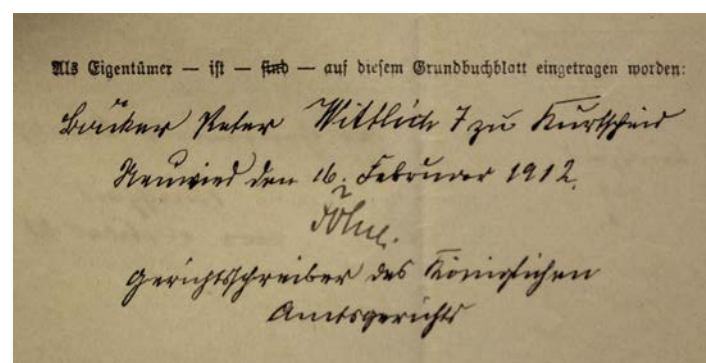 Als Eigentümer — ist — sind — auf diesem Grundbuchblatt eingetragen worden:
Bäcker Peter Wittlich 7 zu Kurtscheid
Neuwied den 16. Februar 1912.
Gerichtsschreiber des Königlichen
Amtsgerichts